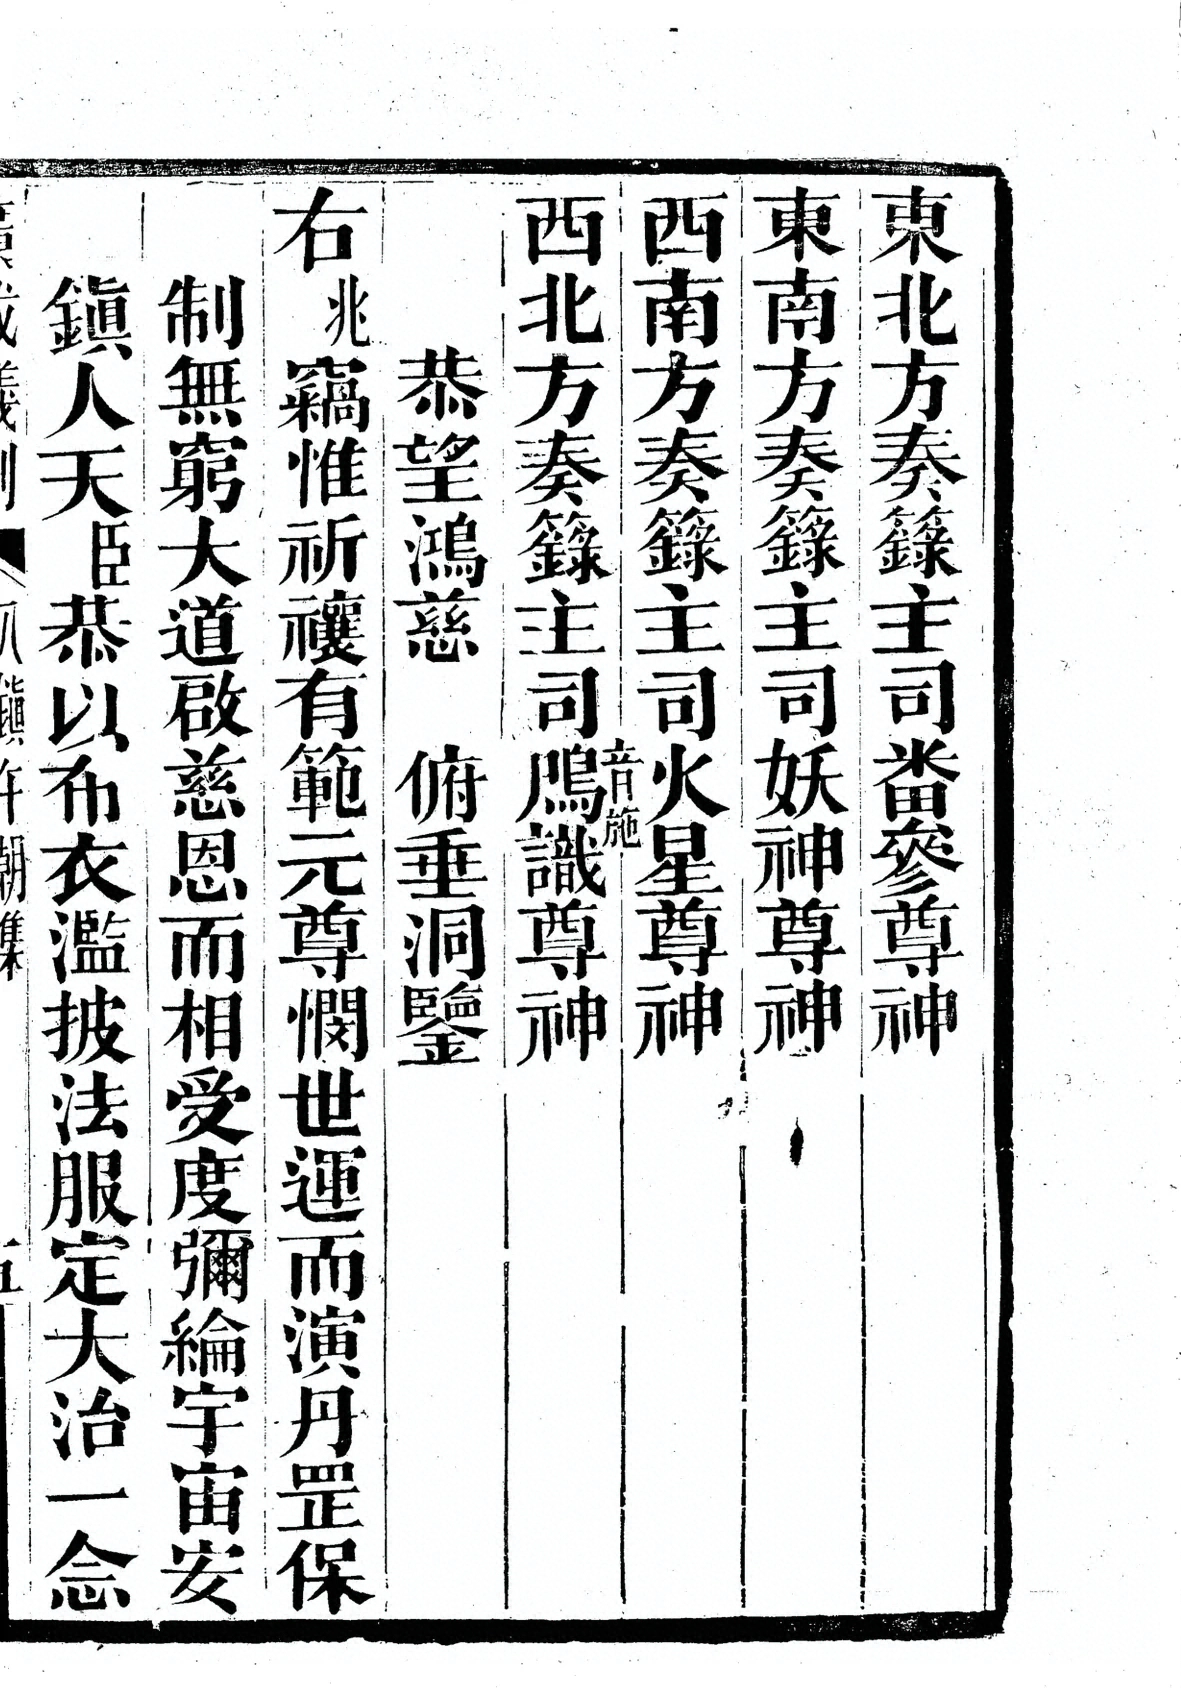 東北方奏籙主司畨參尊神
東南方奏籙主司妖神尊神
西南方奏籙主司火星尊神
音施
西北方奏籙主司鳲識尊神
恭望鴻慈　俯垂洞鑒
右兆竊惟祈禳有範元尊憫世運而演丹罡保
制無窮大道啟慈恩而相受度彌綸宇宙安
鎮人天臣恭以布衣濫披法服定大治一念